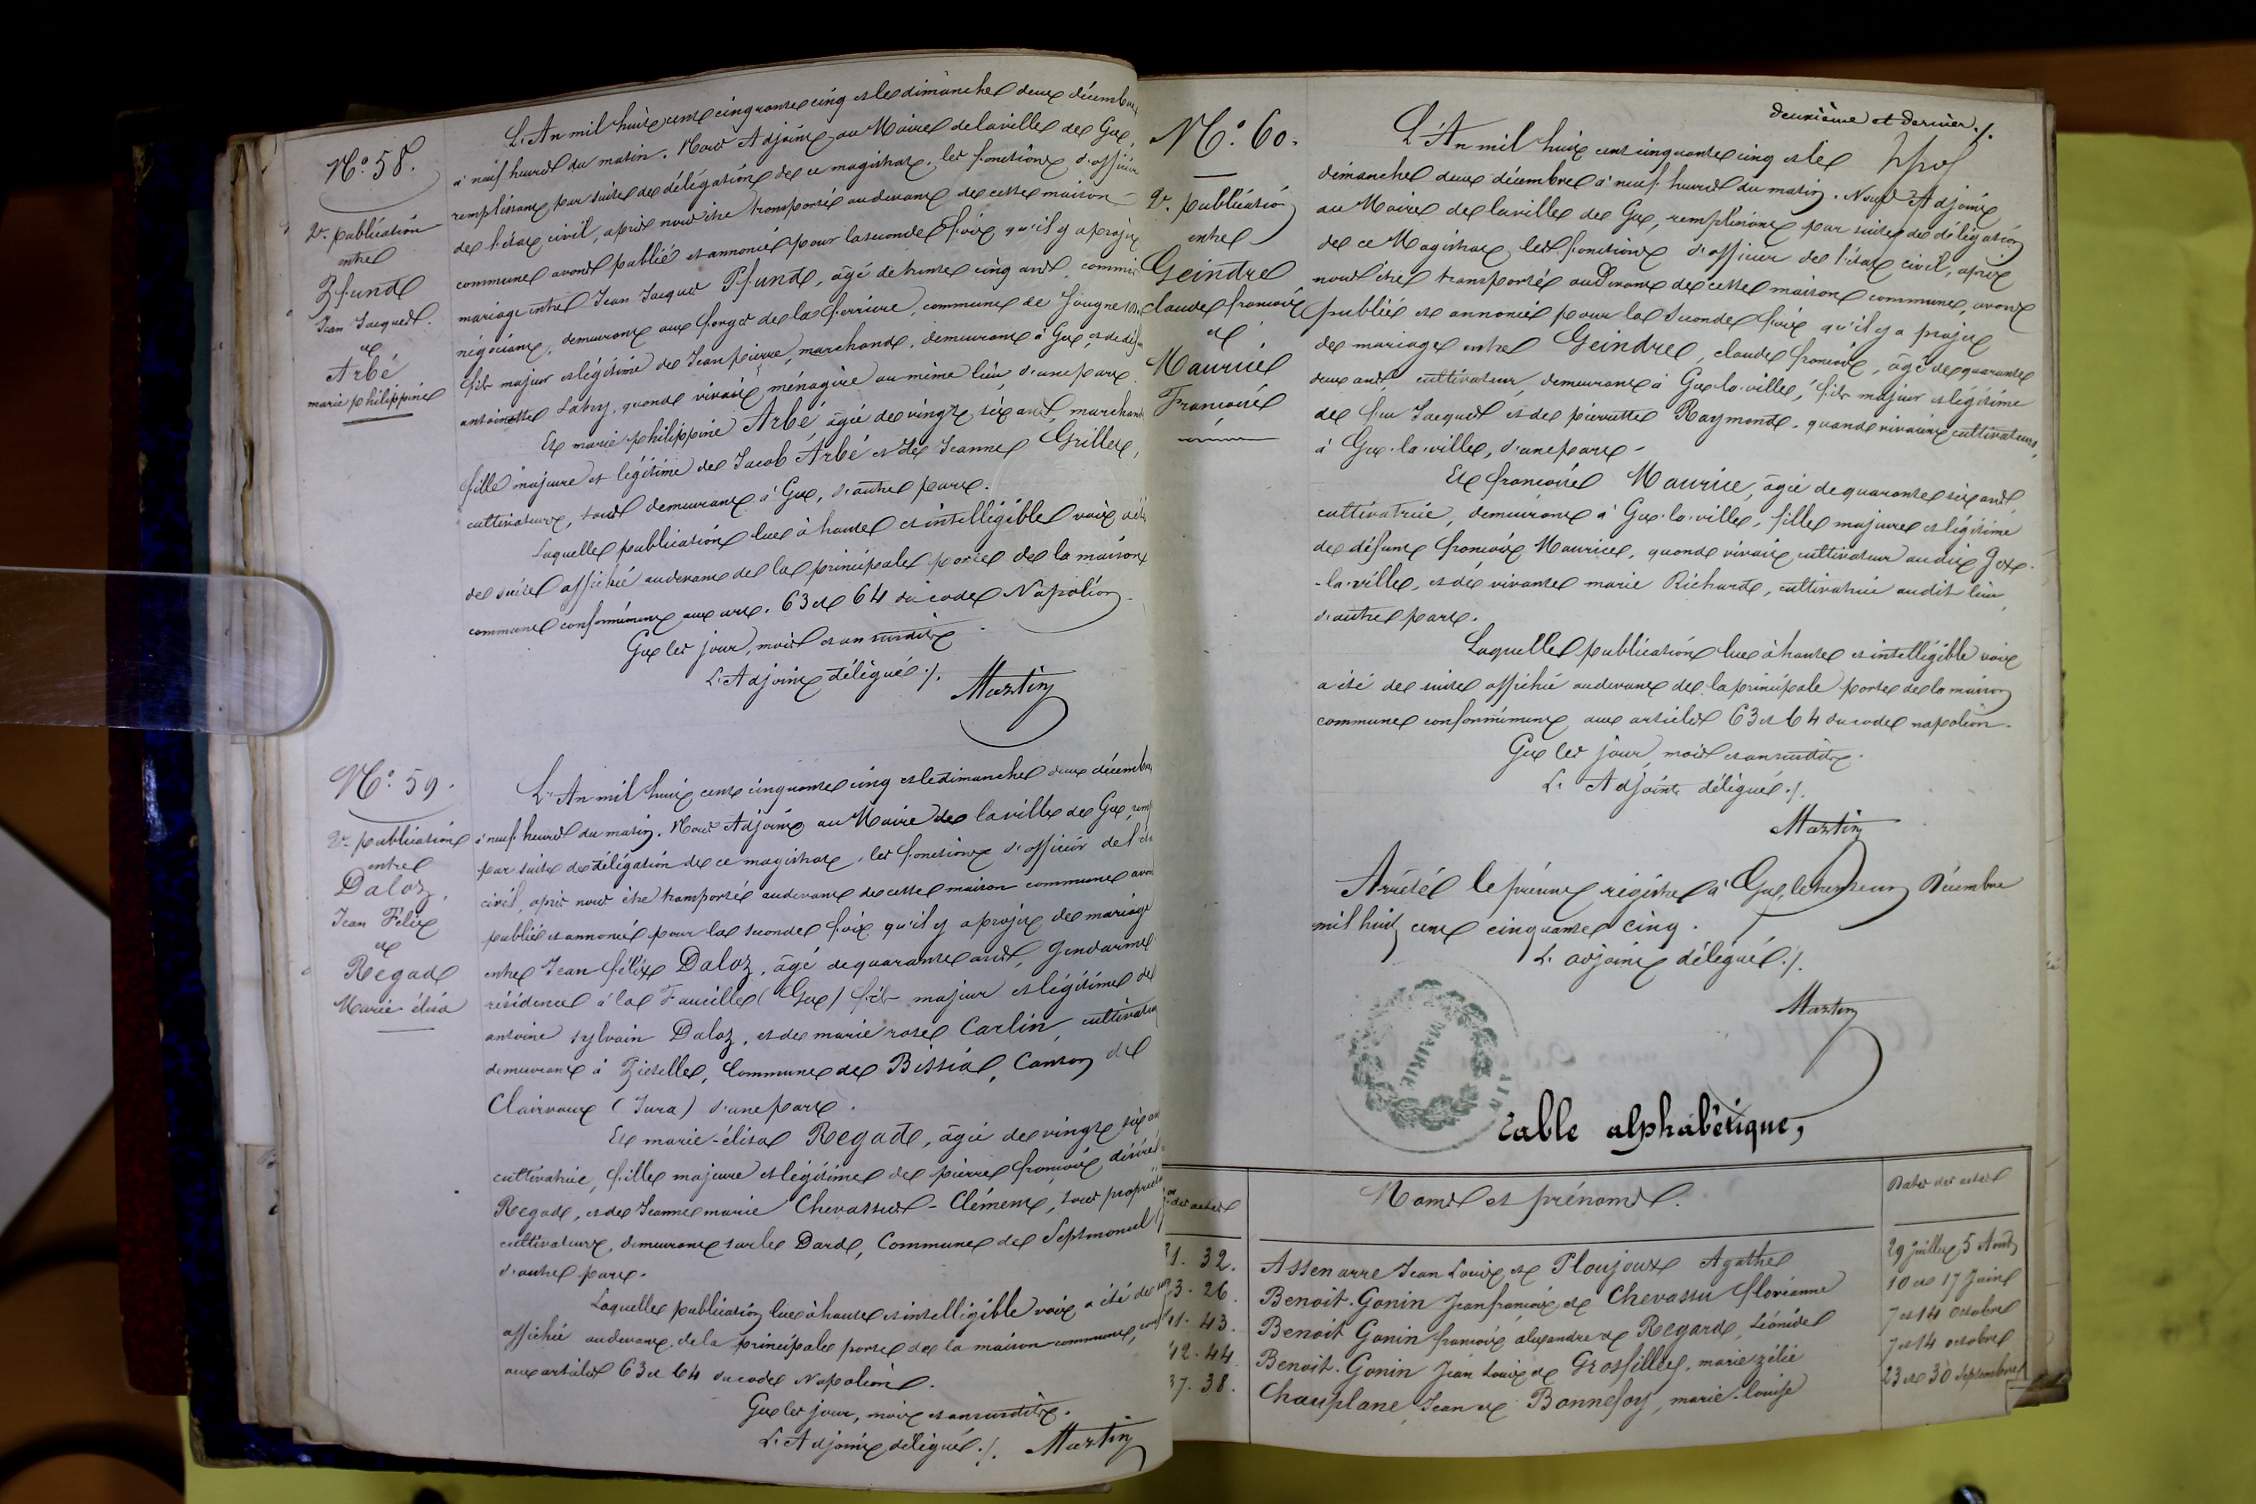 N.o 58.
2e. publication
entre
Pfund
Jean Jacques.
et
Arbé
marie philippine
L'An mil huit cent cinquante cinq et le dimanche deux décembre
à neuf heures du matin. Nous Adjoint au Maire de la ville de Gex,
remplissant par suite de délégation de ce magistrat, les fonctions d'officier
de l'état civil, après nous être transporté au devant de cette maison
commune avons publié et annoncé pour la seconde fois qu'il y a projet
mariage entre Jean Jacques Pfund, âgé de trente cinq ans, commis
négociant, demeurant aux forges de la ferrière, commune de Jougne
fils majeur et légitime de Jean pierre, marchand, demeurant à Gex, et de
antoinette Latry, quand vivait ménagère au même lieu, d'une part.
Et marie philippine Arbé âgée de vingt six ans, marchande
fille majeure et légitime de Jacob Arbé et de Jeanne Grillet,
cultivateurs, tous demeurant à Gex, d'autre part.
Laquelle publication lue à haute et intelligible voix a été
de suite affichée au devant de la principale porte de la maison
commune conformément aux art. 63 et 64 du code Napoléon.
Gex les jour, mois et an susdits
L'Adjoint délégué ./.
Martin
N.o 59.
2e. publication
entre
Daloz,
Jean Félix
et
Regad
Marie-élisa
L'An mil huit cent cinquante cinq et le dimanche deux décembre
à neuf heures du matin. Nous Adjoint au Maire de la ville de Gex,
par suite de délégation de ce magistrat, les fonctions d'officier de l'état
civil, après nous être transporté au devant de cette maison commune avons
publié et annoncé pour la seconde fois qu'il y a projet de mariage
entre Jean félix Daloz, âgé de quarante ans, Gendarme
résidence à la Faucille (Gex) fils majeur et légitime de
antoine sylvain Daloz, et de marie rose Carlin cultivateurs
demeurant à Piételle, Commune de Bissia, Canton de
Clairvaux (Jura) d'une part.
Et marie-élisa Regad, âgée de vingt six ans
cultivatrice, fille majeure et légitime de pierre françois désiré
Regad, et de Jeanne marie Chevassus-Clément, tous
cultivateurs, demeurant sur les Dards, Commune de Septmoncel
d'autre part.
Laquelle publication lue à haute et intelligible voix a été de
affichée au devant de la principale porte de la maison commune,
aux articles 63 et 64 du code Napoléon.
Gex les jour, mois et an susdits.
L'Adjoint délégué ./. Martin
deuxième et dernier ./.
N.o 60.
2e. publication
entre
Geindre
claude françois
et
Maurice
Françoise
L'An mil huit cent cinquante cinq et le
dimanche deux décembre à neuf heures du matin. Nous Adjoint
au Maire de la ville de Gex, remplissant par suite de délégation
de ce Magistrat, les fonctions d'officier de l'état civil, après
nous être transporté au devant de cette maison commune, avons
publié et annoncé pour la seconde fois qu'il y a projet
de mariage entre Geindre, claude françois, âgé de quarante
deux ans, cultivateur, demeurant à Gex-la-ville, fils majeur et légitime
de feu Jacques et de pierrette Raymond, quand vivaient cultivateurs,
à Gex-la-ville, d'une part.
Et françoise Maurice, âgée de quarante six ans,
cultivatrice, demeurant à Gex-la-ville, fille majeure et légitime
de défunt françois Maurice, quand vivait, cultivateur audit Gex
-la-ville, et de vivante marie Richard, cultivatrice audit lieu,
d'autre part.
Laquelle publication lue à haute et intelligible voix
a été de suite affichée au devant de la principale porte de la maison
commune conformément aux articles 63 et 64 du code napoléon.
Gex les jour, mois et an susdits.
L'Adjoint délégué ./.
Martin
Arrêté le présent régistre à Gex, le trente un Décembre
mil huit cent cinquante cinq.
L'adjoint délégué ./.
Martin
MAIRIE
AIN
Table alphabétique,
des actes
Noms et prénoms.
Dates des actes
31. 32. Assenarre Jean Louis et Ploujoux Agathe 29 juillet, 5 Août
26. Benoit-Gonin Jean françois et Chevassu florianne 10 et 17 Juin
41. 43. Benoit Gonin françois alexandre et Regard, Léonide 7 et 14 octobre
42. 44. Benoit-Gonin Jean Louis et Grosfilley, marie zélie 7 et 14 octobre
37. 38. Chauplane, Jean et Bonnefoy, marie-louise 23 et 30 Septembre